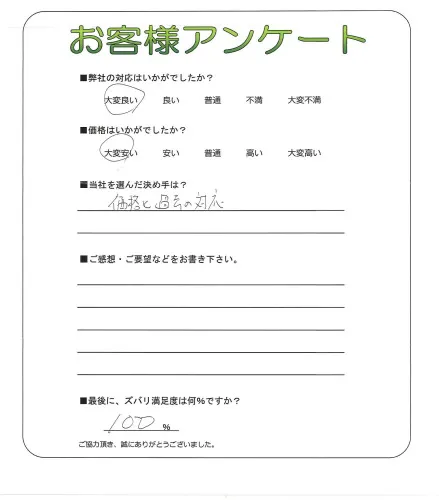 お客様アンケート
■弊社の対応はいかがでしたか？
大変良い 良い 普通 不満 大変不満
■価格はいかがでしたか？
大変安い 安い 普通 高い 大変高い
■当社を選んだ決め手は？
価格と過去の対応
■ご感想・ご要望などをお書き下さい。
■最後に、ズバリ満足度は何%ですか？
100 %
ご協力頂き、誠にありがとうございました。